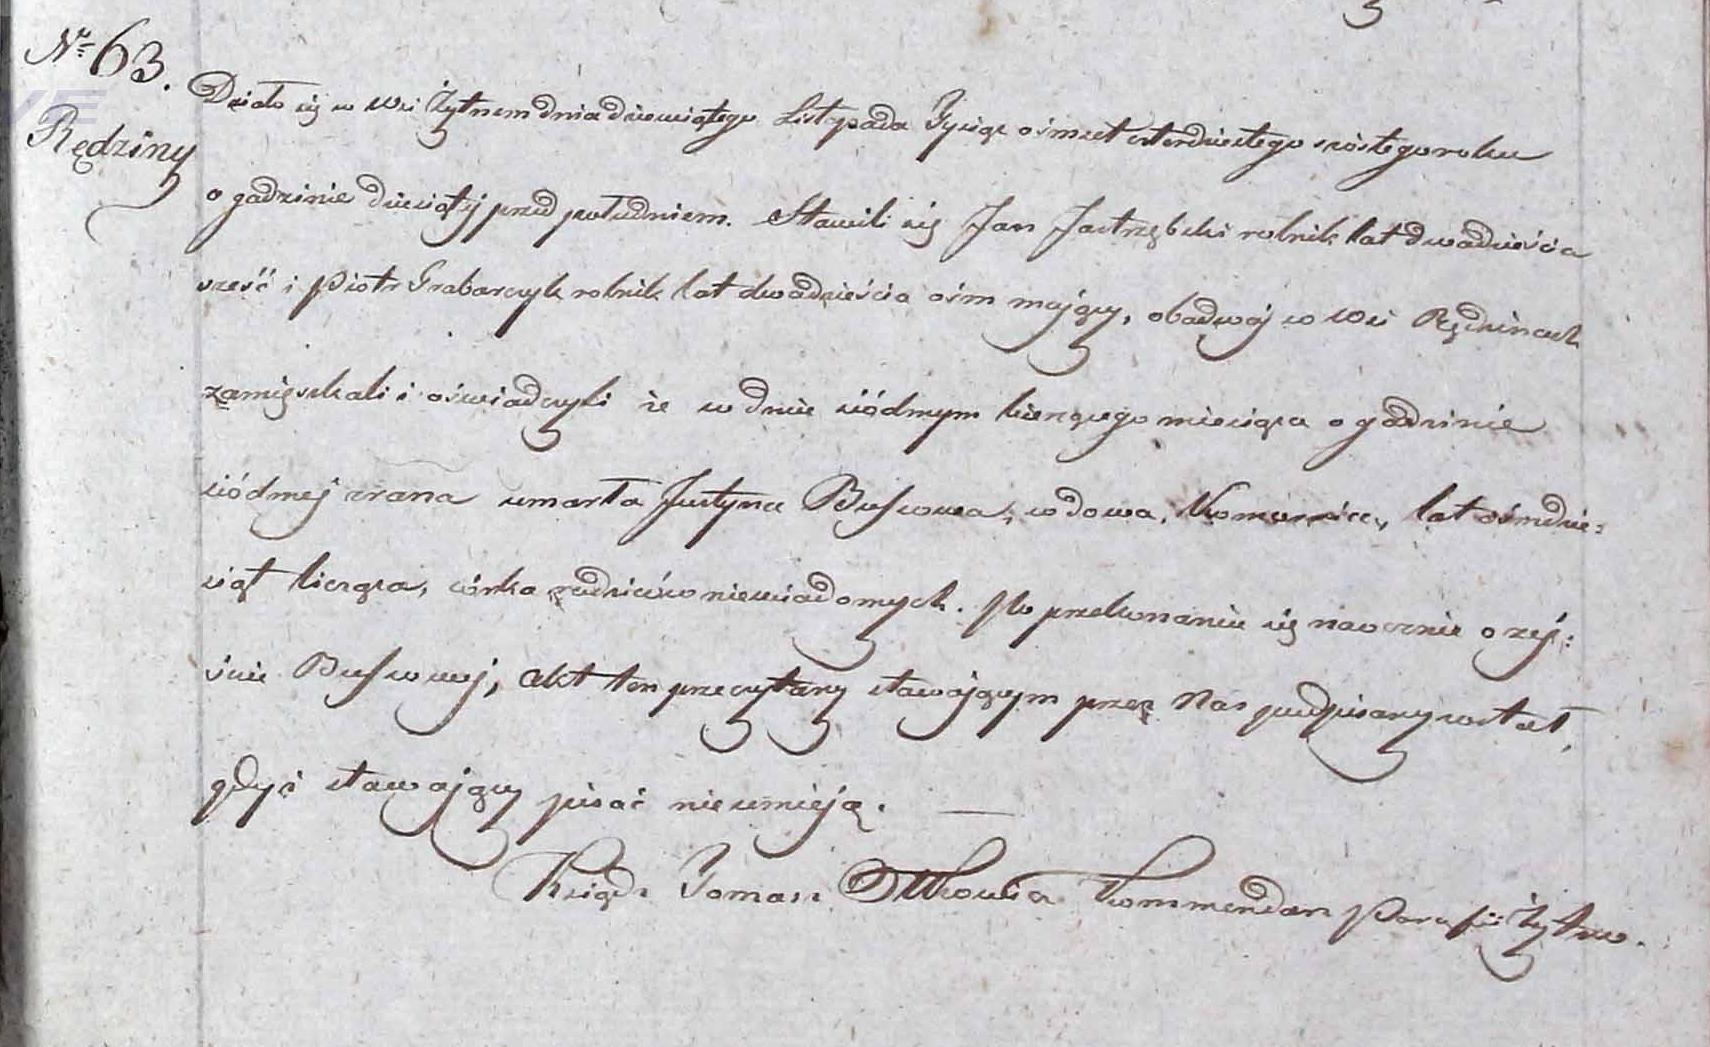 Nr 63.
Rędziny
Działo się w Wsi Żytnem dnia dziewiątego Listopada Tysiąc ośmset czterdziestego szóstego roku
o godzinie dziesiątéj przed południem. Stawili się Jan Jastrzębski rolnik lat dwadzieścia
sześć i Piotr Grabarczyk rolnik lat dwadzieścia ośm mający, obadwaj w Wsi Rędzinach
zamięszkali i oświadczyli że w dniu siódmym bieżącego miesiąca o godzinie
siódmej zrana umarła Justyna wdowa, Komornica, lat ośmdzie:
siąt licząca, córka rodziców niewiadomych. Po przekonaniu się naocznie o zejś:
ciu akt ten przeczytany stawającym przez Nas podpisany został,
gdyż stawający pisać nieumieją. —
Ksiądz Tomasz Kommendarz Parafii Żytno.